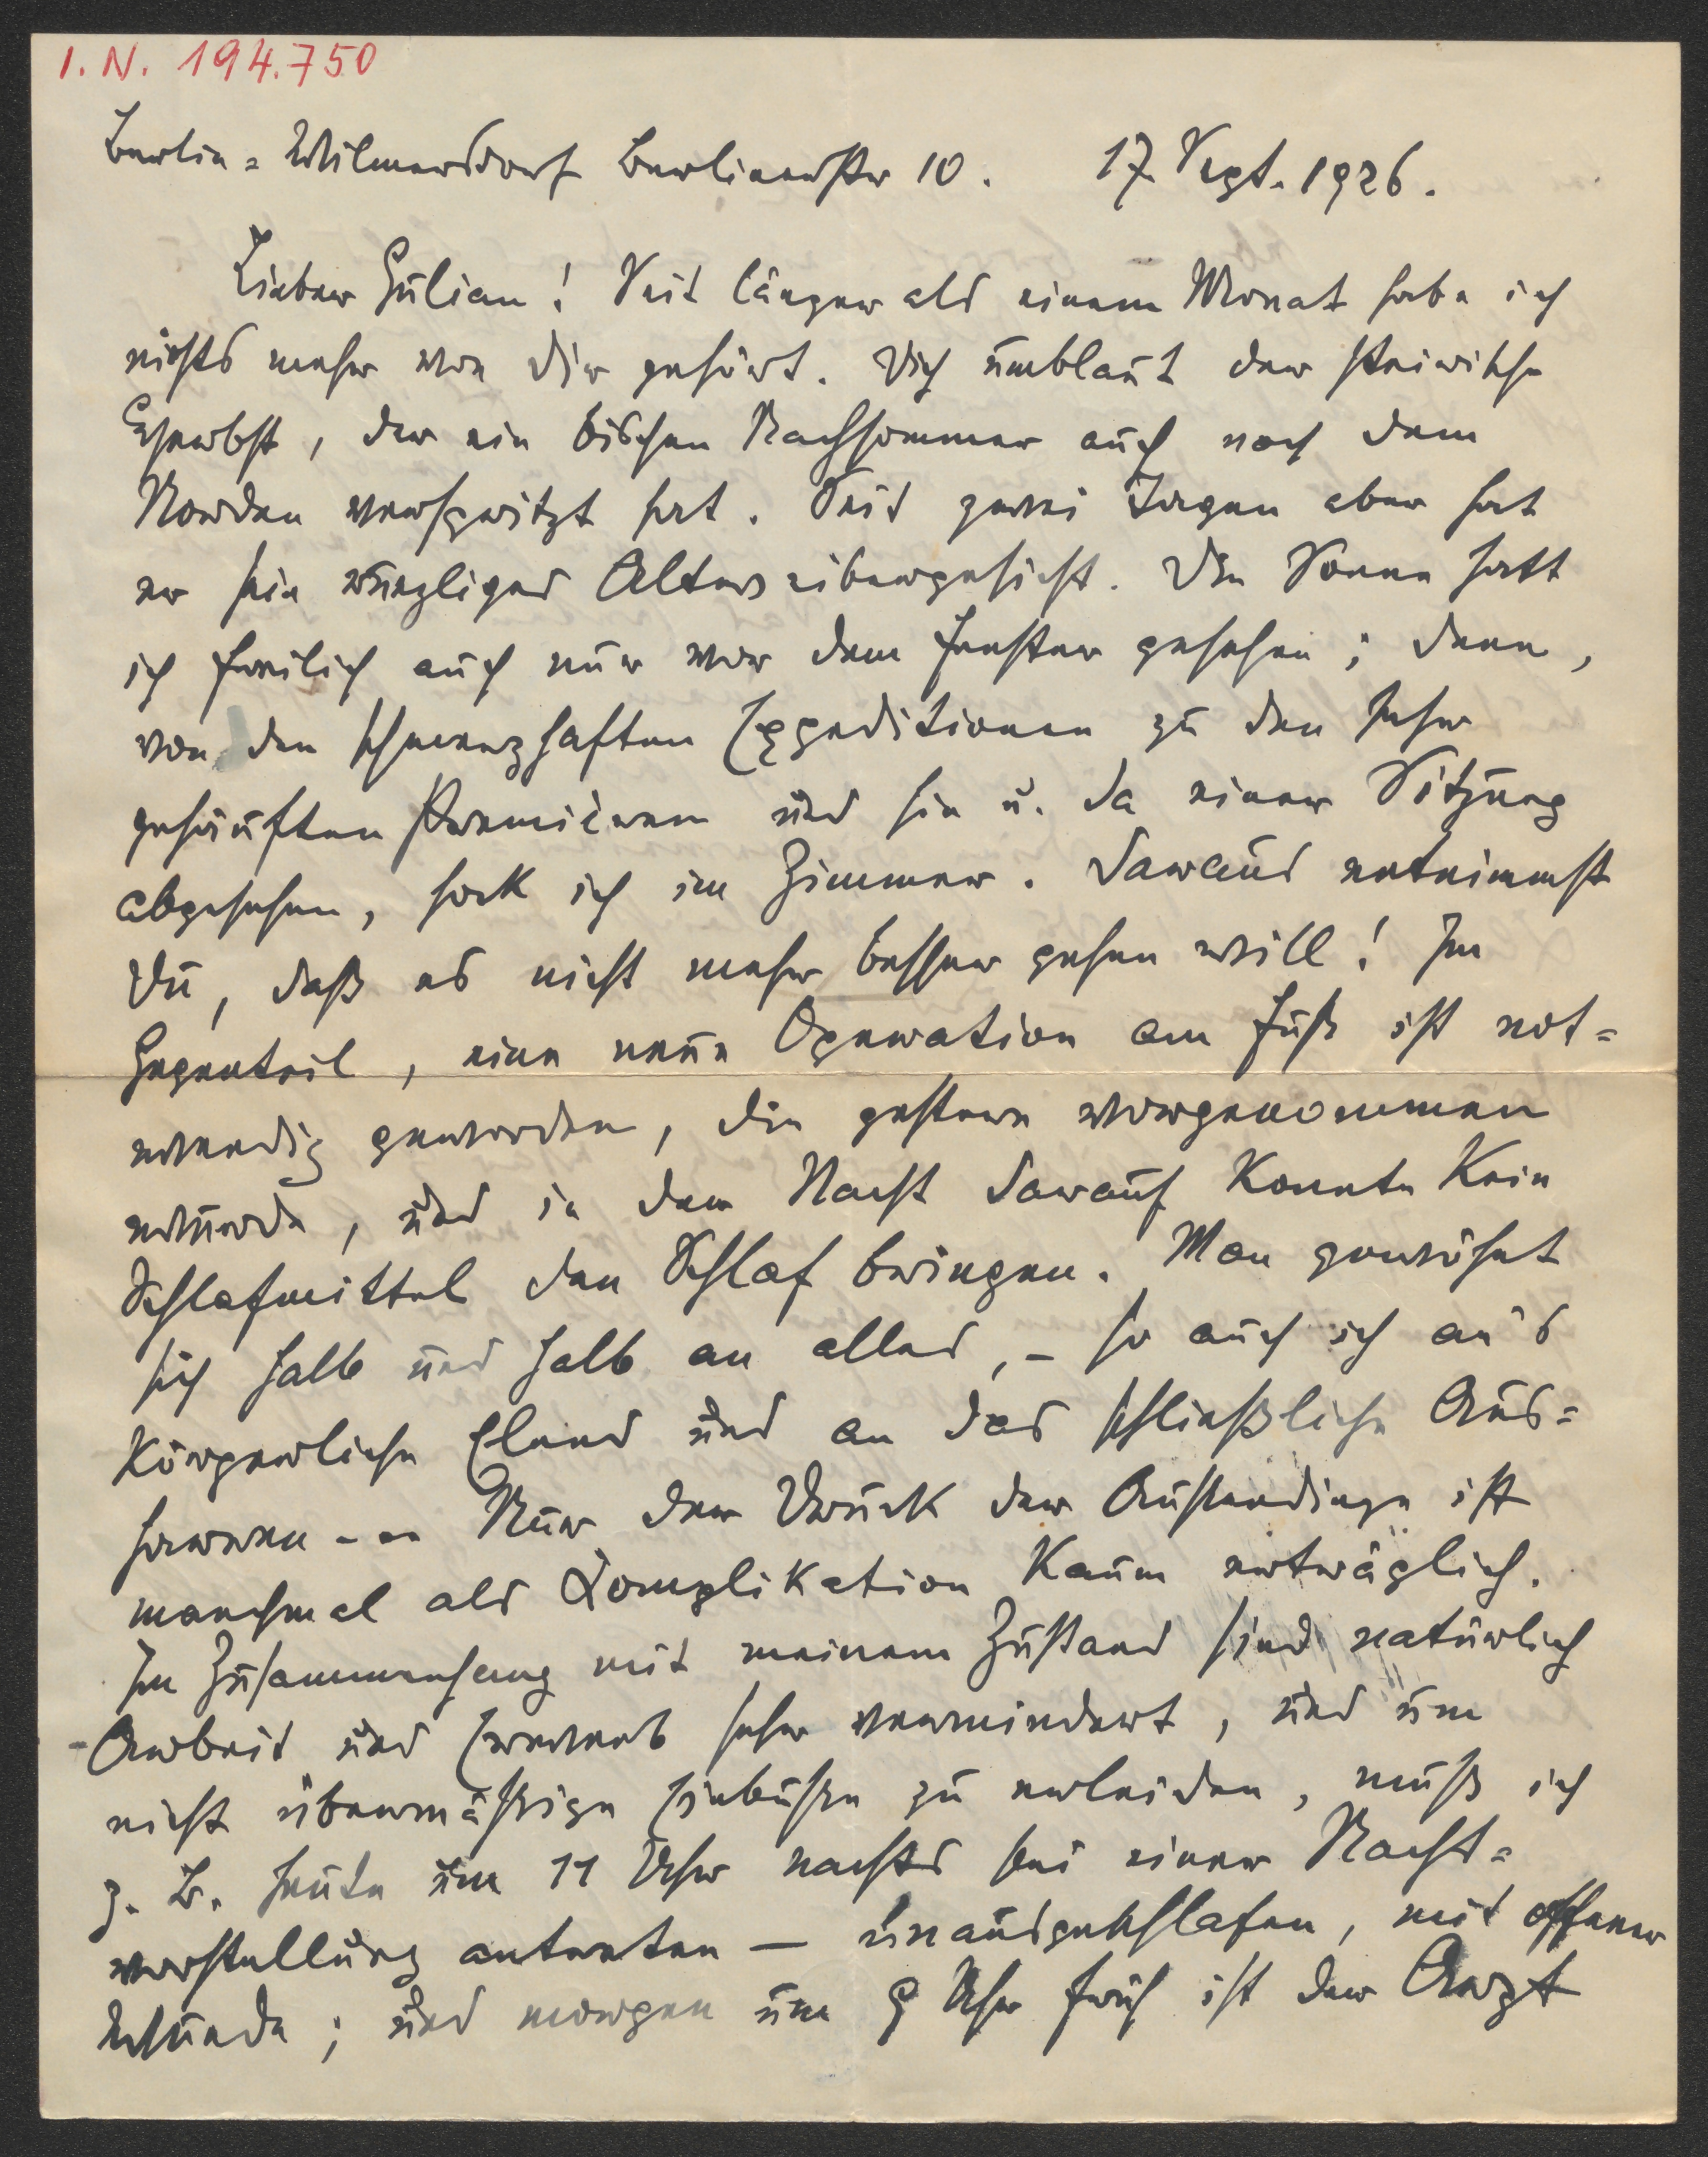 I. N. 194.750
Berlin-Wilmersdorf Berlinerstr 10. 17. Sept. 1926.
Lieber Julian! Seit länger als einem Monat habe ich
nichts mehr von Dir gehört. Dich umblaut der steirische
Herbst, der ein bischen Nachsommer auch nach dem
Norden verspritzt hat. Seit zwei Tagen aber hat
er sein runzliges Altweibergesicht. Die Sonne hatt
ich freilich auch nur vor dem Fenster gesehen; denn,
von den schmerzhaften Expeditionen zu den sehr
gehäuften Premièren und hie u. da einer Sitzung
abgesehen, hock ich im Zimmer. Daraus entnimmst
Du, daß es nicht mehr besser gehen will! Im
Gegenteil, eine neue Operation am Fuß ist not-
wendig geworden, die gestern vorgenommen
wurde, und in der Nacht darauf konnte kein
Schlafmittel den Schlaf bringen. Man gewöhnt
sich halb und halb an alles, – so auch ich an's
körperliche Elend und an das schließliche Aus-
harren -- Nur der Druck der Außendinge ist
manchmal als Komplikation kaum erträglich.
Im Zusammenhang mit meinem Zustand sind natürlich
Arbeit und Erwerb sehr vermindert, und um
nicht übermäßige Einbuße zu erleiden, muß ich
z. B. heute um 11 Uhr nachts bei einer Nacht-
vorstellung antreten — unausgeschlafen, mit offener
Wunde; und morgen um 9 Uhr früh ist der Arzt